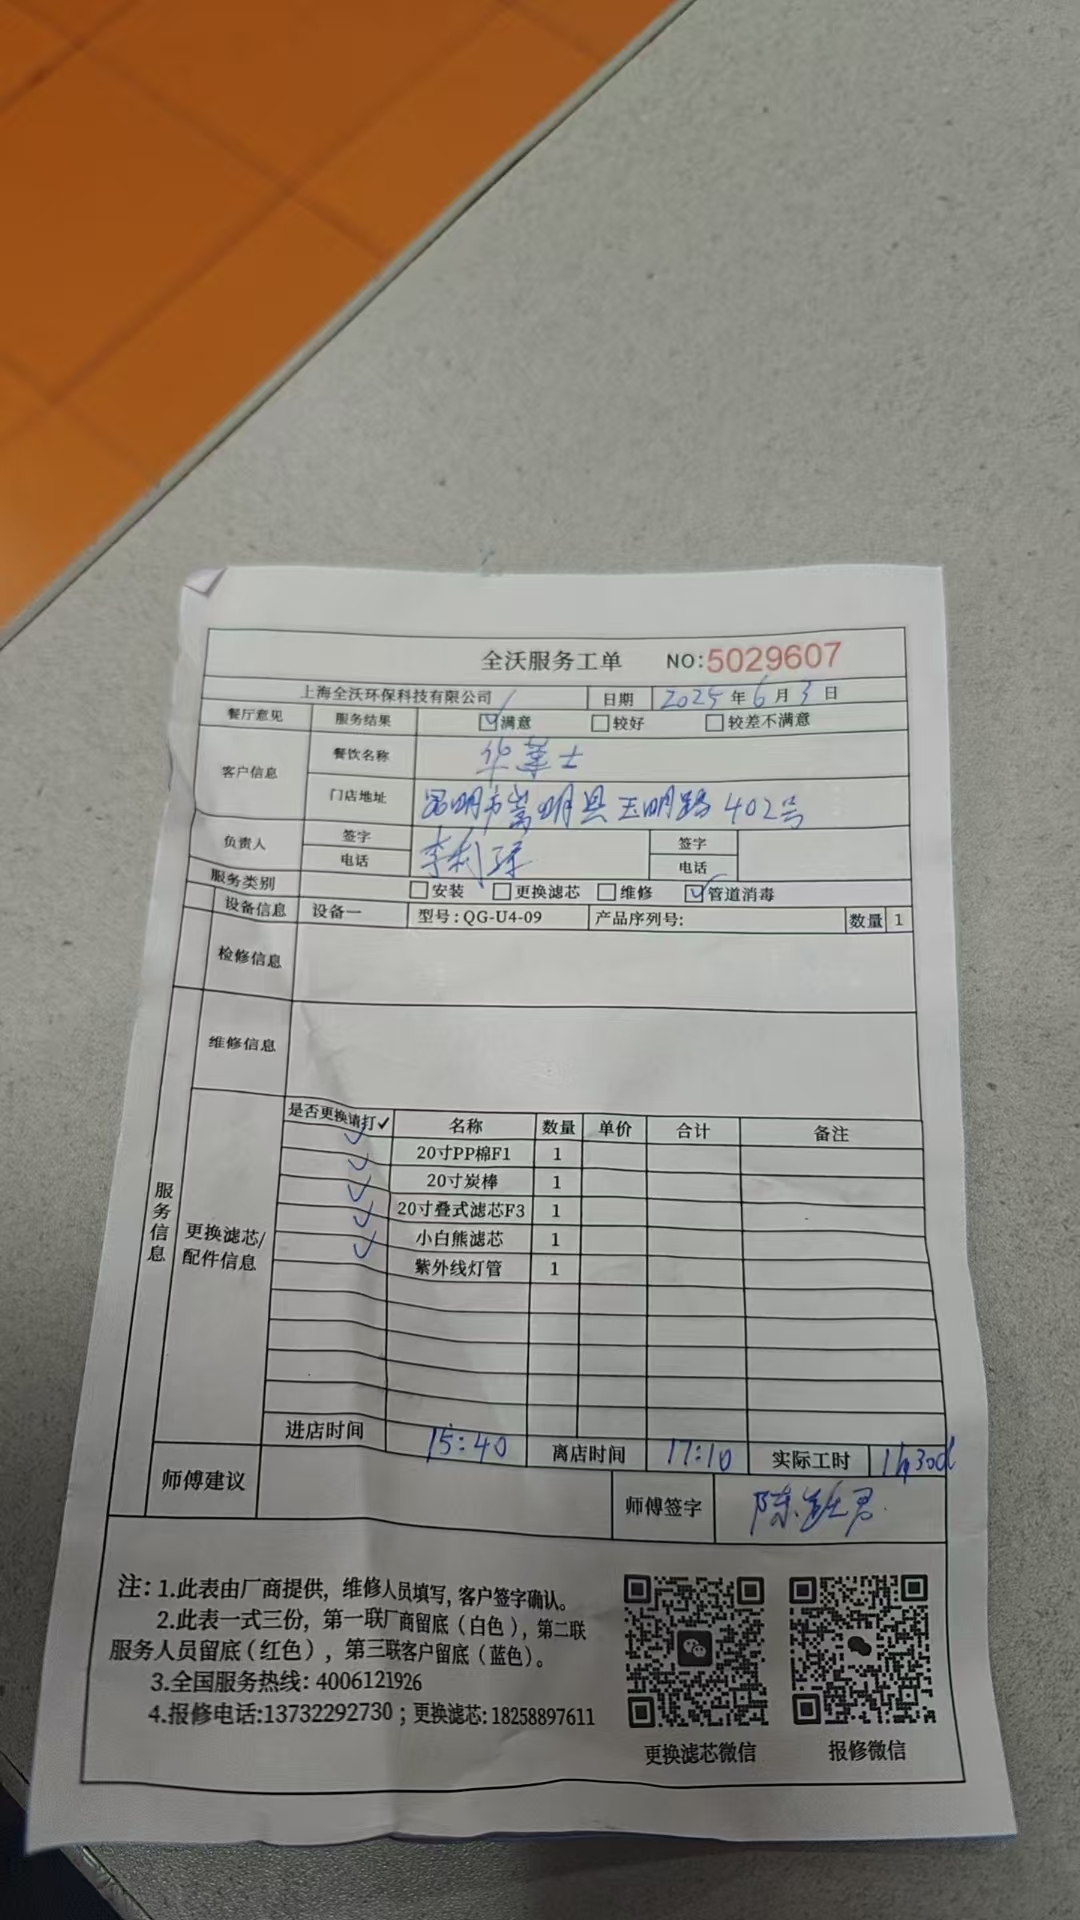 全沃服务工单 NO:5029607
上海全沃环保科技有限公司 日期 2025年6月3日
餐厅意见 服务结果 ☑满意 □较好 □较差不满意
客户信息 餐饮名称 华莱士
门店地址 昆明市嵩明县玉明路402号
负责人 签字 签字
电话 电话
服务类别 □安装 □更换滤芯 □维修 ☑管道消毒
设备信息 设备一 型号:QG-U4-09 产品序列号: 数量 1
检修信息
维修信息
服务信息
更换滤芯/配件信息
是否更换请打✓ 名称 数量 单价 合计 备注
✓ 20寸PP棉F1 1
✓ 20寸炭棒 1
✓ 20寸叠式滤芯F3 1
✓ 小白熊滤芯 1
✓ 紫外线灯管 1
进店时间 15:40 离店时间 17:10 实际工时
师傅建议 师傅签字
注:1.此表由厂商提供,维修人员填写,客户签字确认。
2.此表一式三份,第一联厂商留底(白色),第二联
服务人员留底(红色),第三联客户留底(蓝色)。
3.全国服务热线:4006121926
4.报修电话:13732292730;更换滤芯:18258897611
更换滤芯微信 报修微信